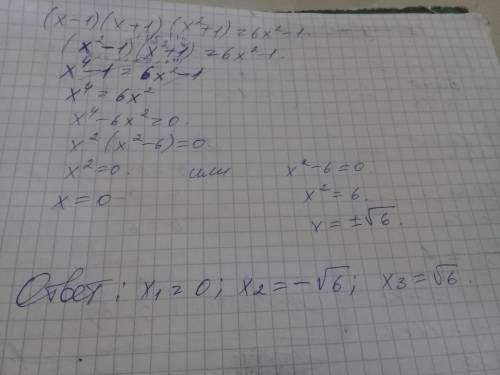 (x-1)(x+1)(x²+1)=6x²-1
(x²-1)(x²+1)=6x²-1.
x⁴-1=6x²-1
x⁴=6x²
x⁴-6x²=0.
x²(x²-6)=0.
x²=0. или x²-6=0
x=0 x²=6.
x=±√6.
Ответ: x₁=0; x₂=-√6; x₃=√6.